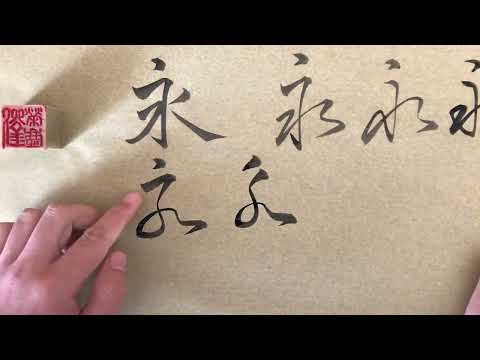 永 永 永 永
永 永